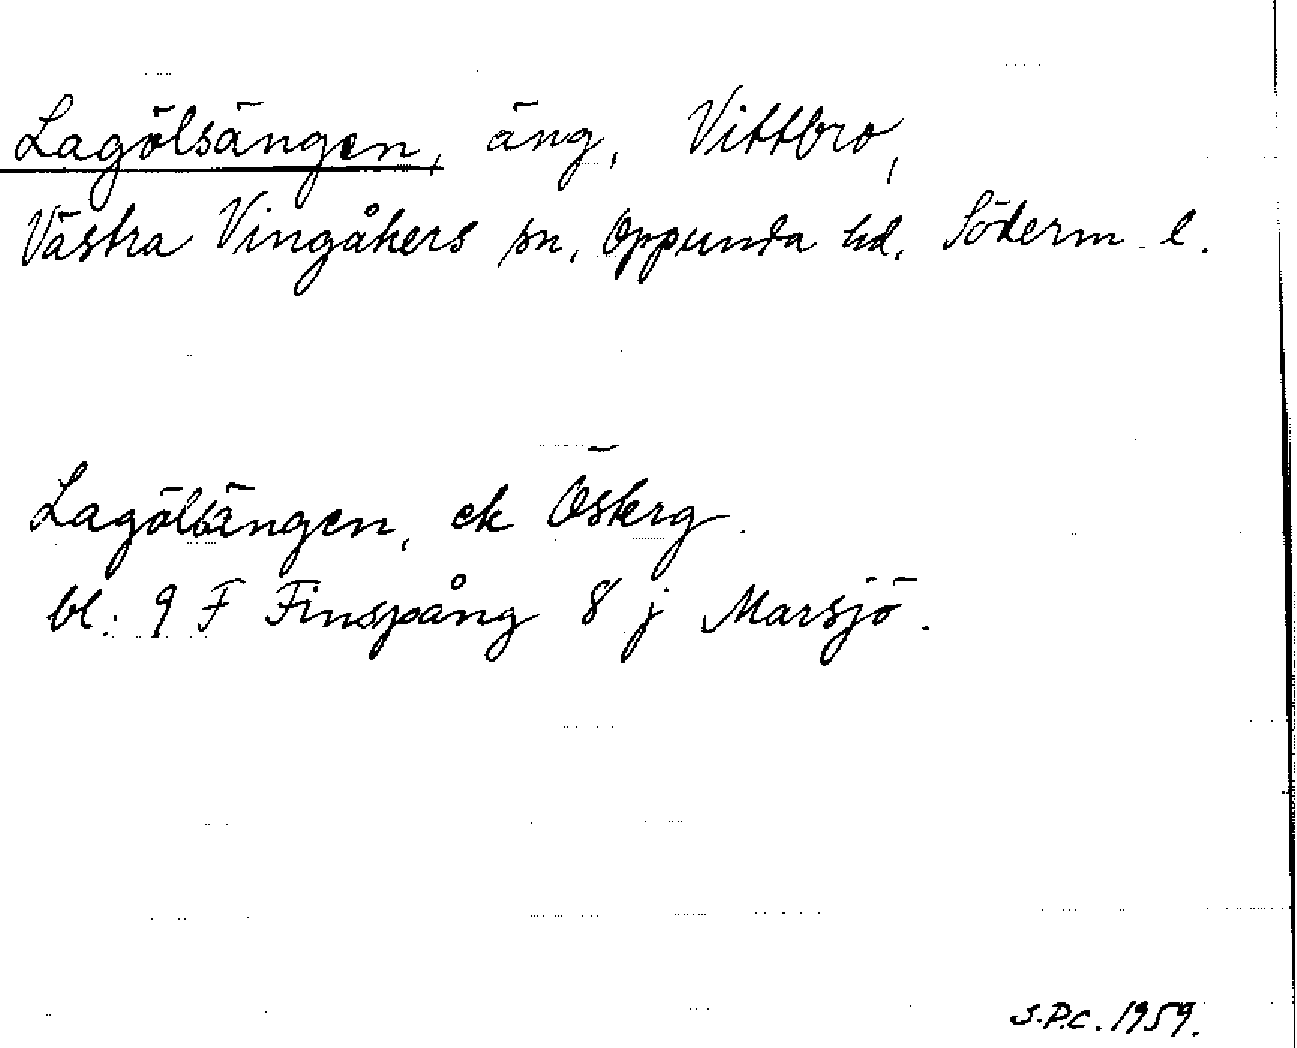 Lagölsängen, äng, Vittbro,
Västra Vingåkers sn, Oppunda hd. Söderm. l.
Lagölsängen, ek Österg.
bl. 9 F Finspång 8 j Marsjö.
S.P.C. 1959.